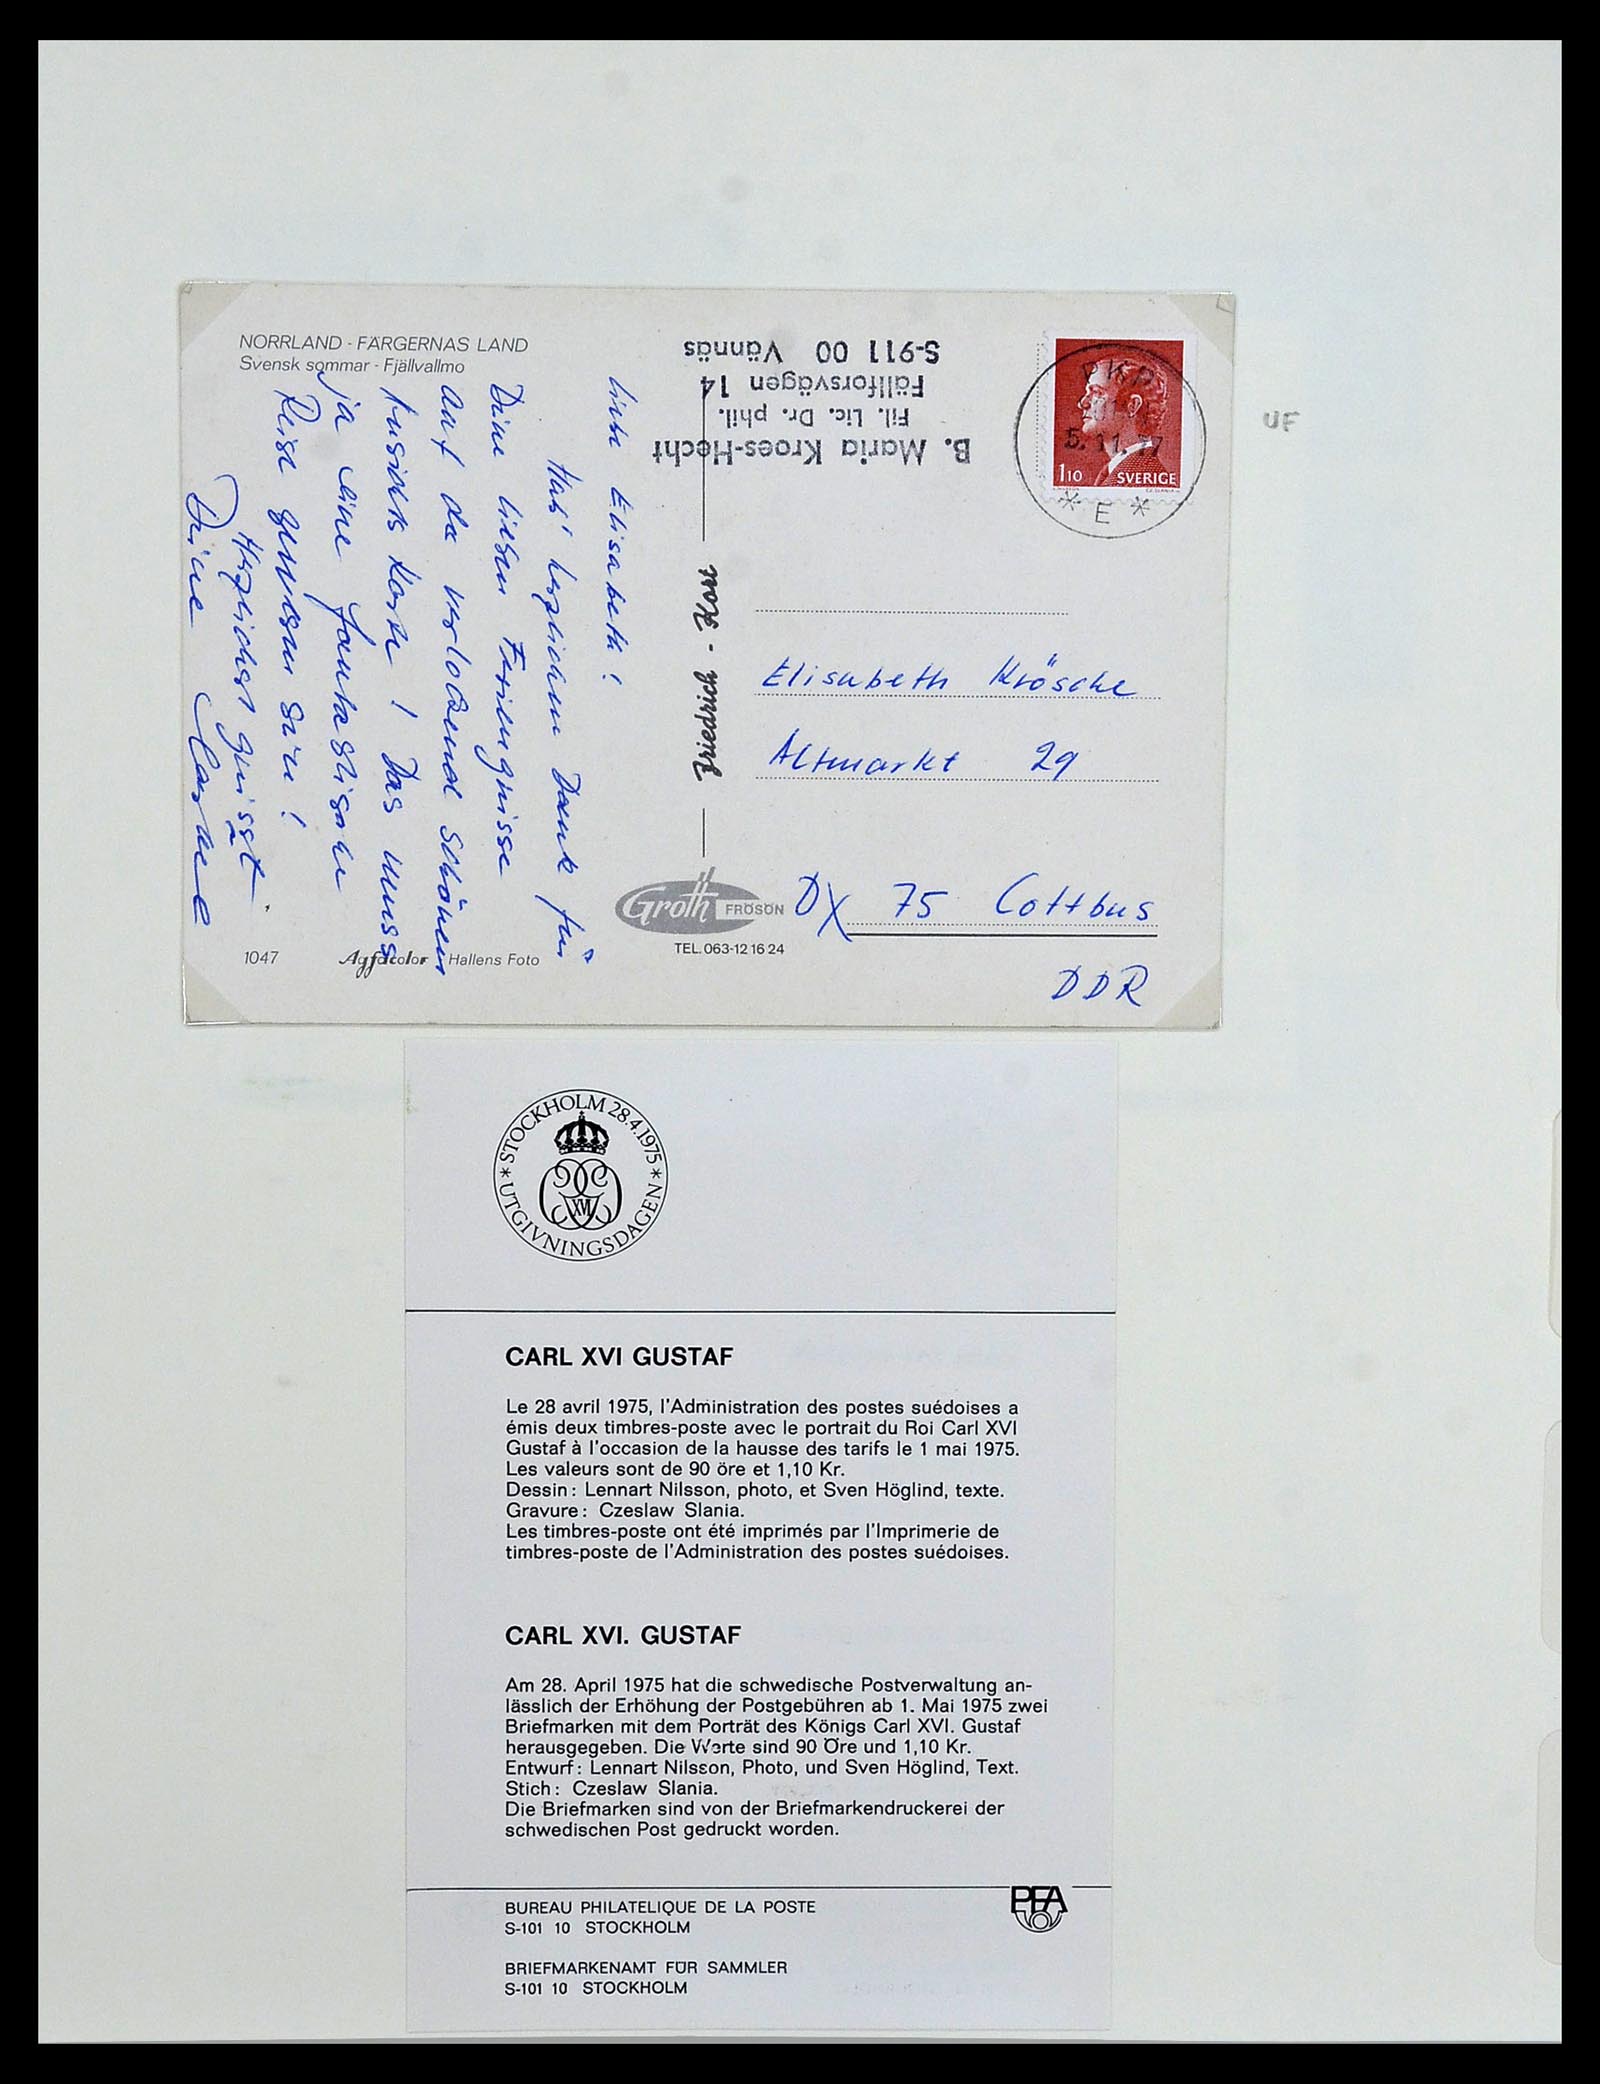 NORRLAND - FÄRGERNAS LAND
Svensk sommar - Fjällvallmo
B. Maria Kroes-Hecht
Fil. Lic. Dr. phil.
Fällforsvägen 14
S-911 00 Vännäs
PKP
5.11.77
* E *
1 10 SVERIGE
UF
Liebe Elisabeth!
Hab' herzlichen Dank für
Deine lieben Feriengrüsse
auf der verlockend schönen
Karte! Das muss
ja eine fantastische
Reise gewesen sein!
Herzlichst grüsst
Deine
Friedrich - Kort
Elisabeth Krösche
Altmarkt 29
DX 75 Cottbus
DDR
Groth FRÖSÖN
TEL. 063-12 16 24
1047 Agfacolor Hallens Foto
* STOCKHOLM 28.4.1975 * UTGIVNINGSDAGEN
XVI
CARL XVI GUSTAF
Le 28 avril 1975, l'Administration des postes suédoises a
émis deux timbres-poste avec le portrait du Roi Carl XVI
Gustaf à l'occasion de la hausse des tarifs le 1 mai 1975.
Les valeurs sont de 90 öre et 1,10 Kr.
Dessin: Lennart Nilsson, photo, et Sven Höglind, texte.
Gravure: Czeslaw Slania.
Les timbres-poste ont été imprimés par l'Imprimerie de
timbres-poste de l'Administration des postes suédoises.
CARL XVI. GUSTAF
Am 28. April 1975 hat die schwedische Postverwaltung an-
lässlich der Erhöhung der Postgebühren ab 1. Mai 1975 zwei
Briefmarken mit dem Porträt des Königs Carl XVI. Gustaf
herausgegeben. Die Werte sind 90 Öre und 1,10 Kr.
Entwurf: Lennart Nilsson, Photo, und Sven Höglind, Text.
Stich: Czeslaw Slania.
Die Briefmarken sind von der Briefmarkendruckerei der
schwedischen Post gedruckt worden.
BUREAU PHILATELIQUE DE LA POSTE
S-101 10 STOCKHOLM
PFA
BRIEFMARKENAMT FÜR SAMMLER
S-101 10 STOCKHOLM